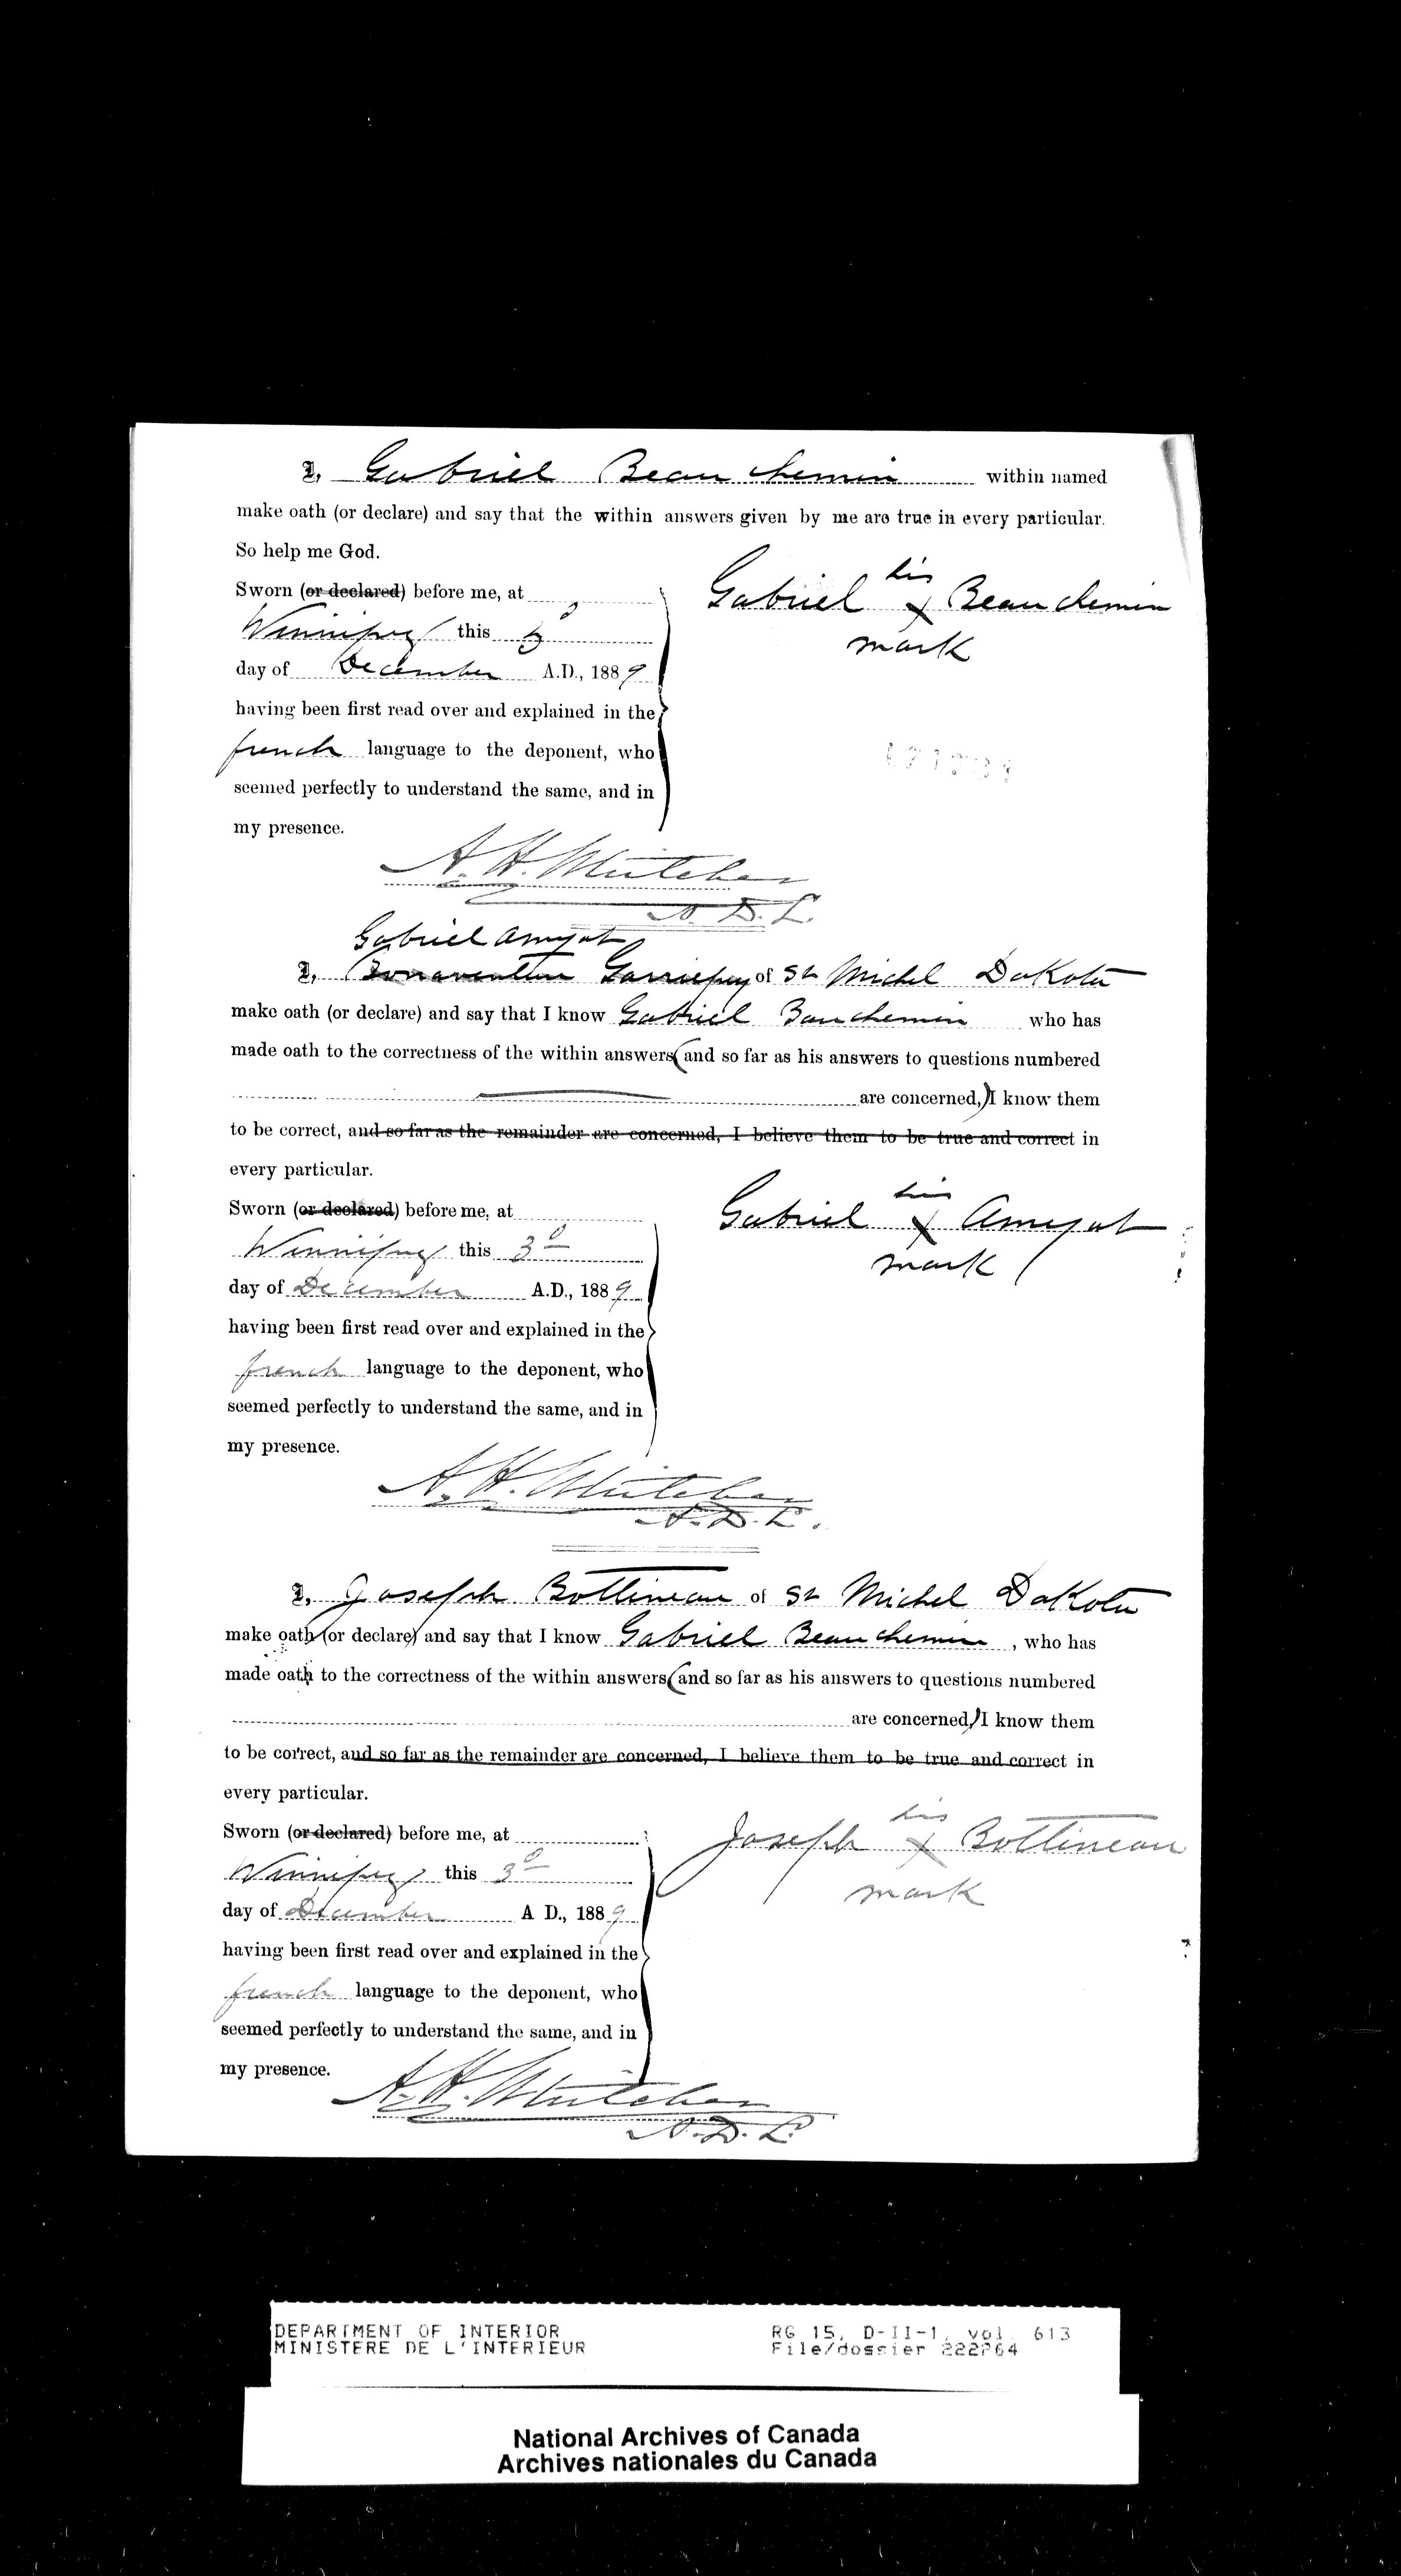 I, Gabriel Beauchemin within named
make oath (or declare) and say that the within answers given by me are true in every particular.
So help me God.
Sworn (or declared) before me, at
Winnipeg this 3d
day of December A.D., 1889
having been first read over and explained in the
french language to the deponent, who
seemed perfectly to understand the same, and in
my presence.
his
Gabriel x Beauchemin
mark
A. H. Whitcher
Gabriel Amyot
I, Bonaventure Garriepy of St Michel Dakota
make oath (or declare) and say that I know Gabriel Bauchemin who has
made oath to the correctness of the within answers (and so far as his answers to questions numbered
are concerned,) I know them
to be correct, and so far as the remainder are concerned, I believe them to be true and correct in
every particular.
Sworn (or declared) before me, at
Winnipeg this 3d
day of December A.D., 1889
having been first read over and explained in the
french language to the deponent, who
seemed perfectly to understand the same, and in
my presence.
his
Gabriel x Amyot
mark
A. H. Whitcher
I, Joseph Bottineau of St Michel Dakota
make oath (or declare) and say that I know Gabriel Beauchemin, who has
made oath to the correctness of the within answers (and so far as his answers to questions numbered
are concerned,) I know them
to be correct, and so far as the remainder are concerned, I believe them to be true and correct in
every particular.
Sworn (or declared) before me, at
Winnipeg this 3d
day of December A D., 1889
having been first read over and explained in the
french language to the deponent, who
seemed perfectly to understand the same, and in
my presence.
his
Joseph x Bottineau
mark
A. H. Whitcher
DEPARTMENT OF INTERIOR
MINISTERE DE L'INTERIEUR
RG 15, D-II-1, vol. 613
File/dossier 222264
National Archives of Canada
Archives nationales du Canada